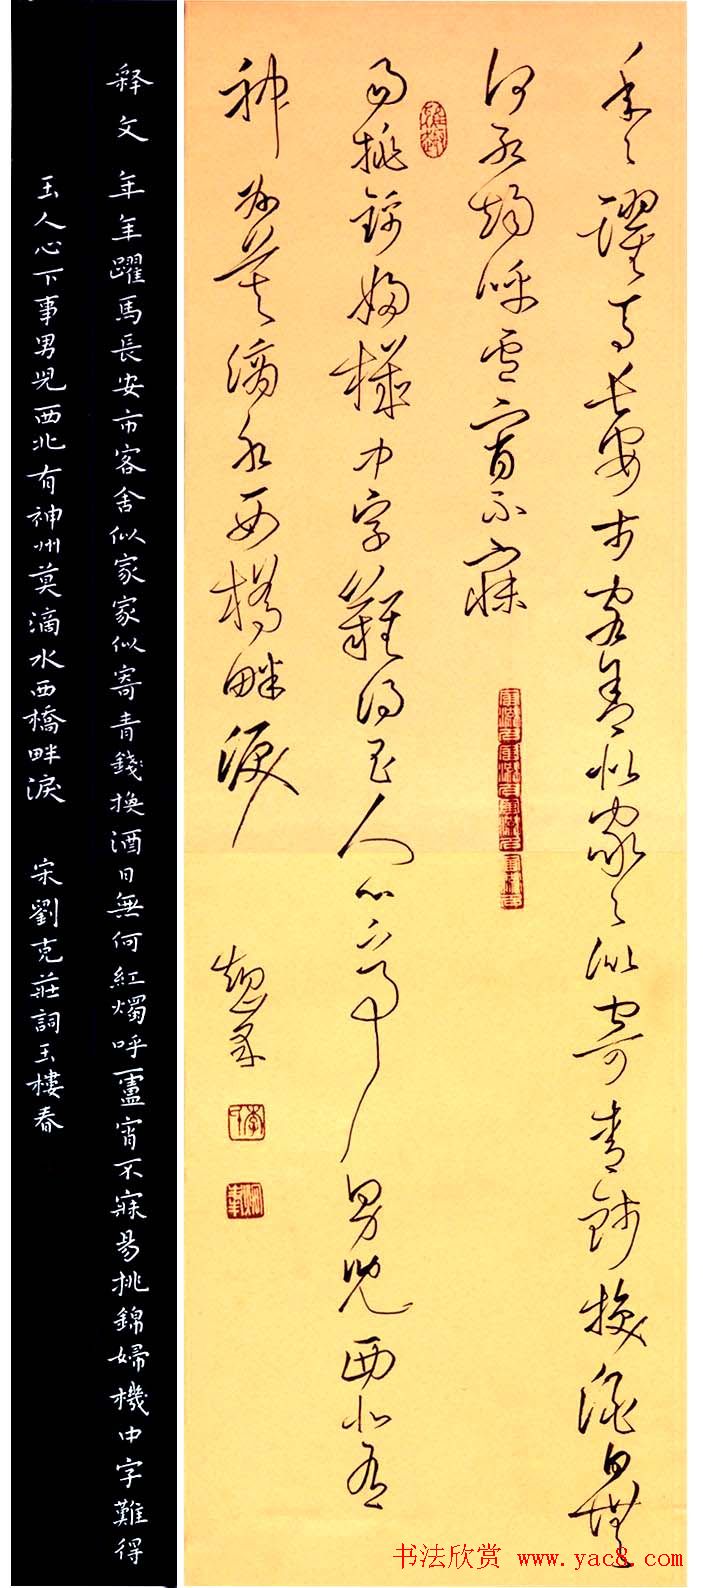 年々躍馬長安市客舍似家々似寄青錢換酒日無
何紅燭呼盧宵不寐
易挑錦婦機中字難得玉人心下事男兒西北有
神州莫滴水西橋畔淚
释文 年年躍馬長安市客舍似家家似寄青錢換酒日無何紅燭呼盧宵不寐易挑錦婦機中字難得
玉人心下事男兒西北有神州莫滴水西橋畔淚 宋劉克莊詞玉樓春
书法欣赏 www.yac8.com